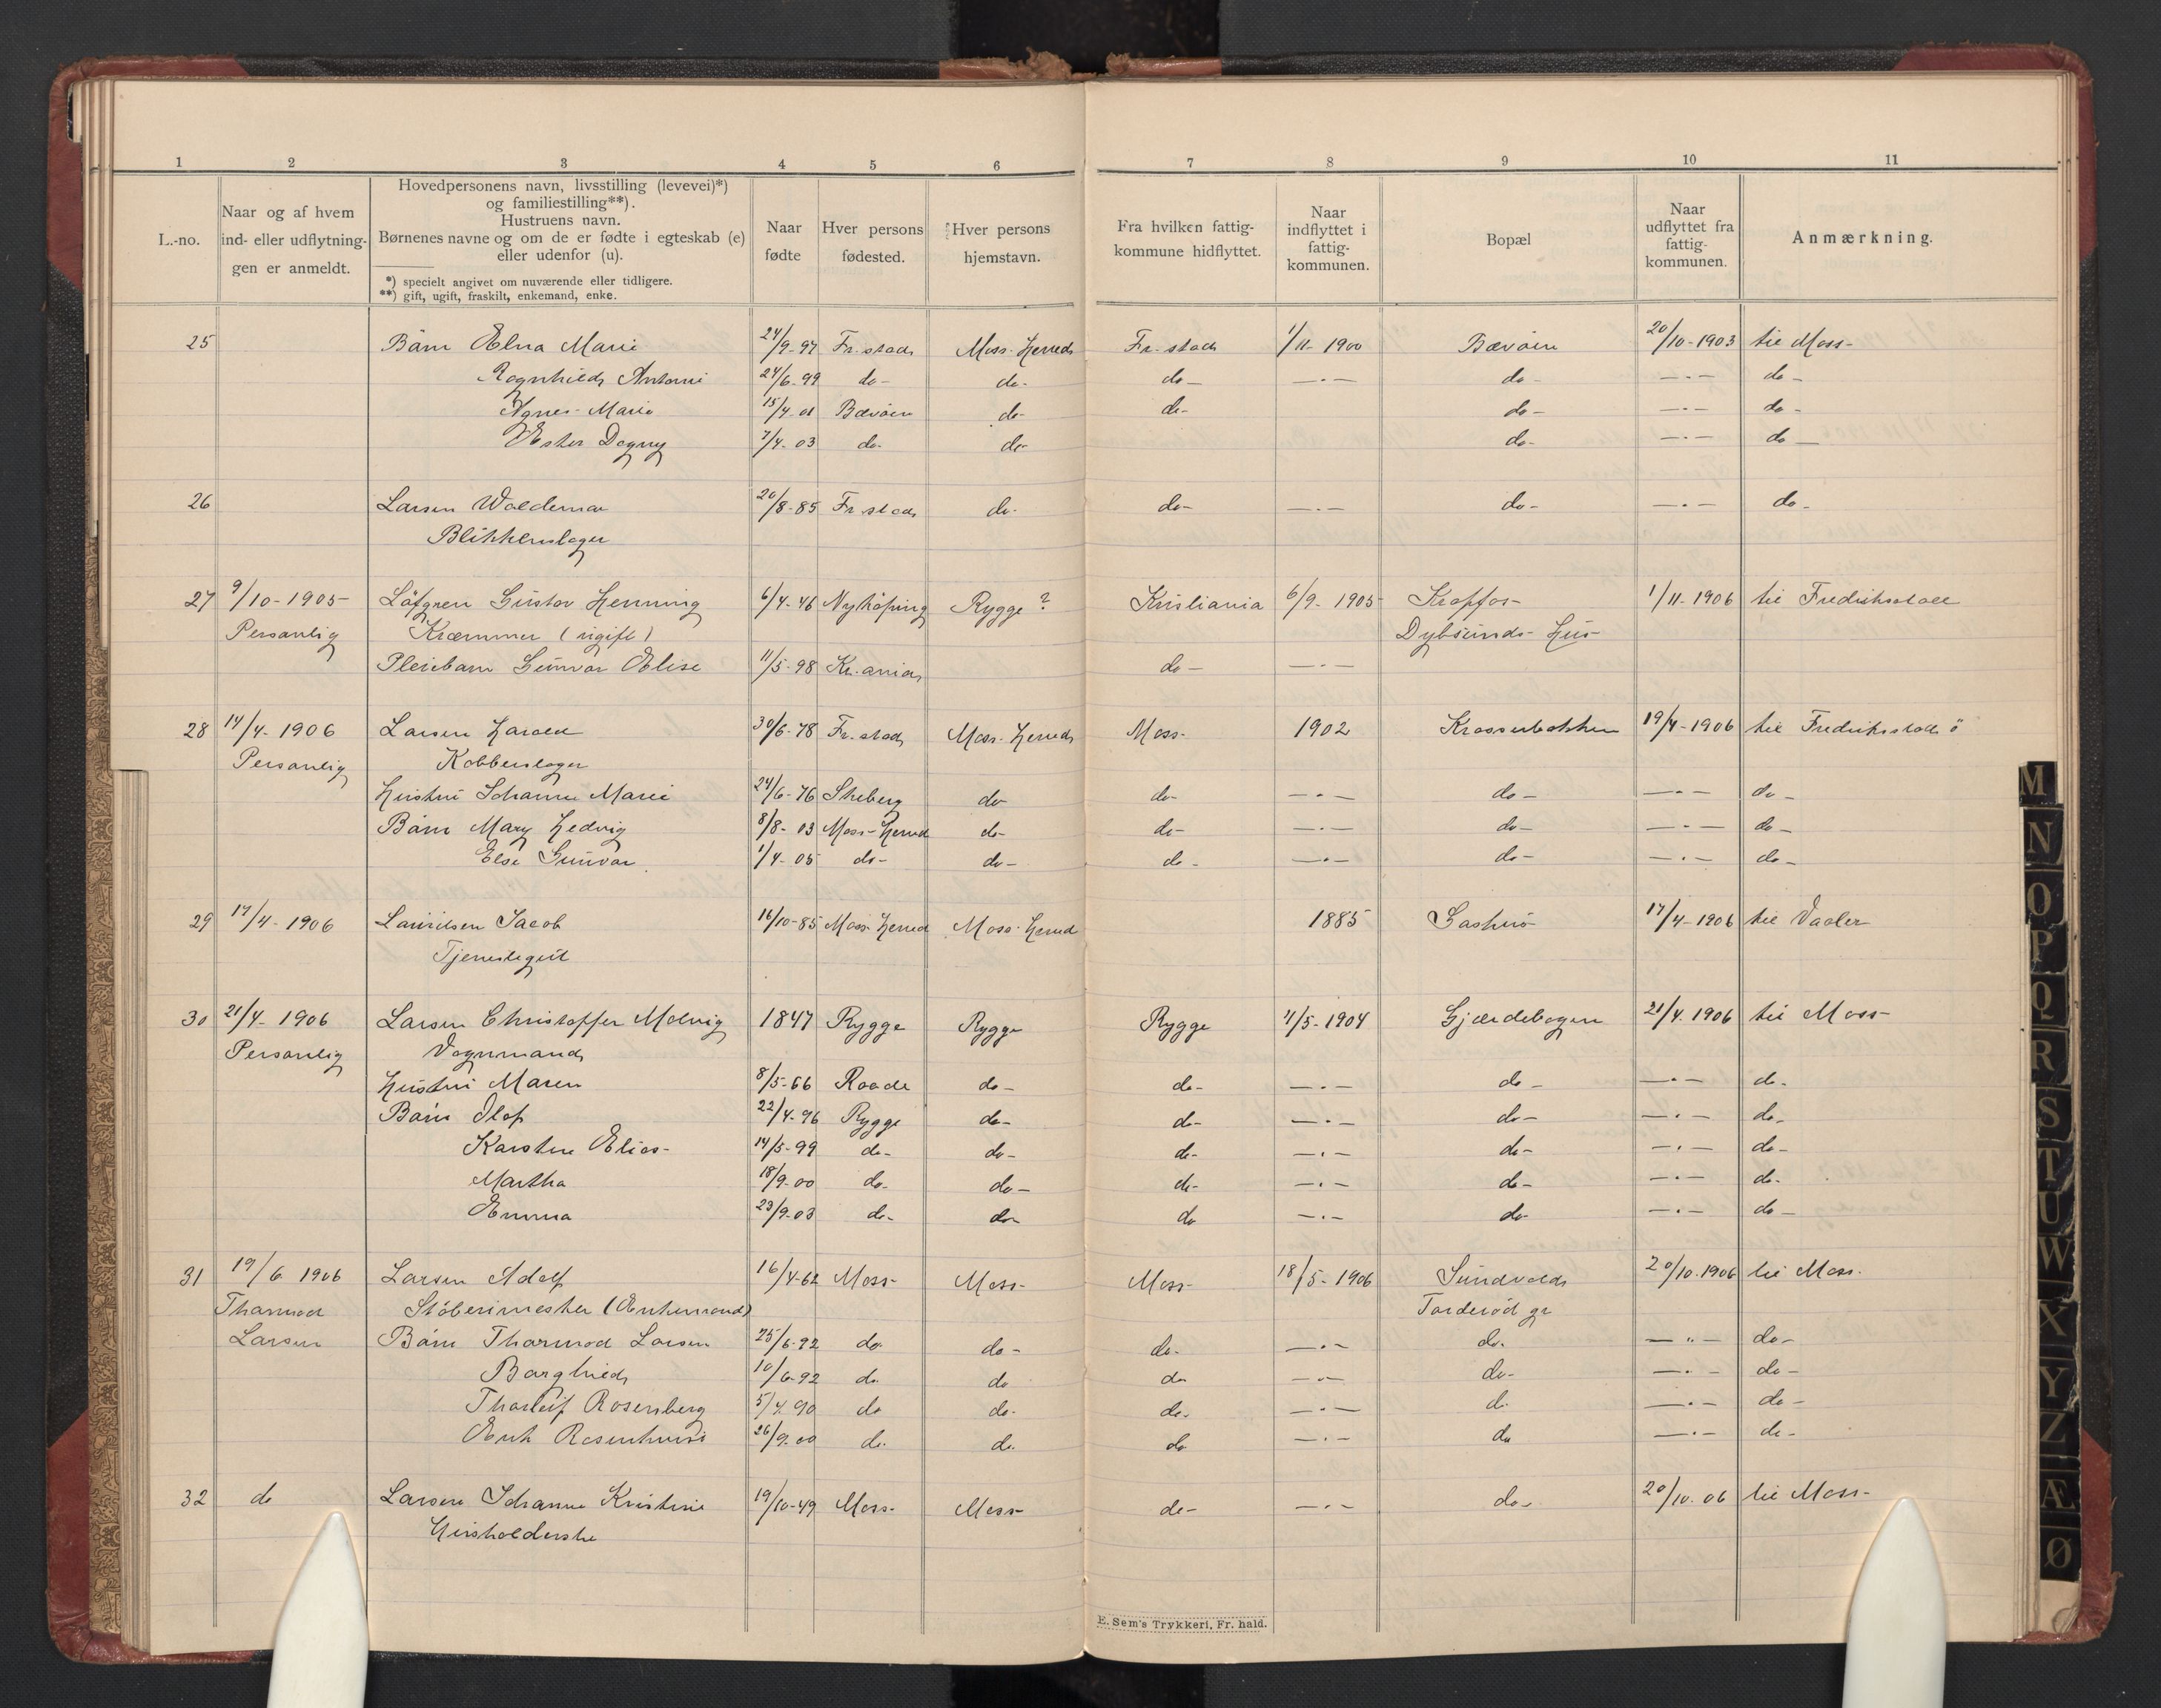 1 2 3 4 5 6 7 8 9 10 11
L.-no.
Naar og af hvem
ind- eller udflytnin-
gen er anmeldt.
Hovedpersonens navn, livsstilling (levevei)*)
og familiestilling**).
Hustruens navn.
Børnenes navne og om de er fødte i egteskab (e)
eller udenfor (u).
*) specielt angivet om nuværende eller tidligere.
**) gift, ugift, fraskilt, enkemand, enke.
Naar
fødte
Hver persons
fødested.
Hver persons
hjemstavn.
Fra hvilken fattig-
kommune hidflyttet.
Naar
indflyttet i
fattig-
kommunen.
Bopæl
Naar
udflyttet fra
fattig-
kommunen.
Anmærkning.
25 Barn Elna Marie 24/9-97 Fr.stad Moss-Herred Fr.stad 1/11-1900 Bævöen 20/10-1903 til Moss-
Ragnhild Antonie 24/6-99 do- do- do- —·— do- —·— do-
Agnes-Marie 15/4-01 Bævöen do- do- do- —·— do-
Ester Dagny 7/4-03 do- do- do- —·— do-
26 Larsen Waldemar 20/8-85 Fr.stad do- do- —·— do- —·— do-
Blikkenslager
27 9/10-1905 Löfgren Gustav Henning 6/4-46 Nyköping Rygge? Kristiania 6/9-1905 Krapfos- 1/11-1906 til Fredrikshald
Personlig Kræmmer (ugift) Dybsunds-Hus-
Pleiebarn Gunvor Elise 11/5-98 Kr.ania do- —·—
28 14/4-1906 Larsen Harald 30/6-78 Fr.stad Moss-Herred Moss- 1902 Krosserbakken 19/4-1906 til Fredriksstad ö
Personlig Kobberslager
Hustru Johanne Marie 24/6-76 Skeberg do- do- —·— do- —·— do-
Barn Mary Hedvig 8/8-03 Moss-Herred do- do- —·— do- —·— do-
Else Gunvor 1/4-05 do- do- do- —·— do- —·— do-
29 17/4-1906 Lauritsen Jacob 16/10-85 Moss-Herred Moss-Herred 1885 17/4-1906 til Vaaler
Tjenestegut
30 21/4-1906 Larsen Christoffer Molvig 1847 Rygge Rygge Rygge 4/5-1904 Gjærdebogen 21/4-1906 til Moss-
Personlig Vognmand
Hustru Maren 8/5-66 Raade do- do- —·— do- —·— do-
Barn Olaf 22/4-96 Rygge do- do- —·— do- —·— do-
Karsten Elias- 14/5-99 do- do- do- —·— do- —·— do-
Martha 18/9-00 do- do- do- —·— do- —·— do-
Emma 23/9-03 do- do- do —·— do- —·— do-
31 19/6 1906 Larsen Adolf 16/4-62 Moss- Moss- Moss- 18/5-1906 Sundvolds 20/10-1906 til Moss-
Thormod Stöberimester (Enkemand) Torderöd gr
Larsen Barn Thormod Larsen 25/6-92 do- do- do- —·— do- —·— do-
Borghild 10/6-92 do- do do- —·— do- —·— do-
Thorleif Rosenberg 5/4 90 do do- do- —·— do- —·— do-
26/9-00 do- do- do- —·— do —·— do-
32 do Larsen Johanne Kristine 19/10-49 Moss- Moss- do- —·— do- 20/10-06 til Moss-
Husholderske
E. Sem's Trykkeri, Fr. hald.
M
N
O
P
Q
R
S
T
U
W
X
Y
Z
Æ
Ø